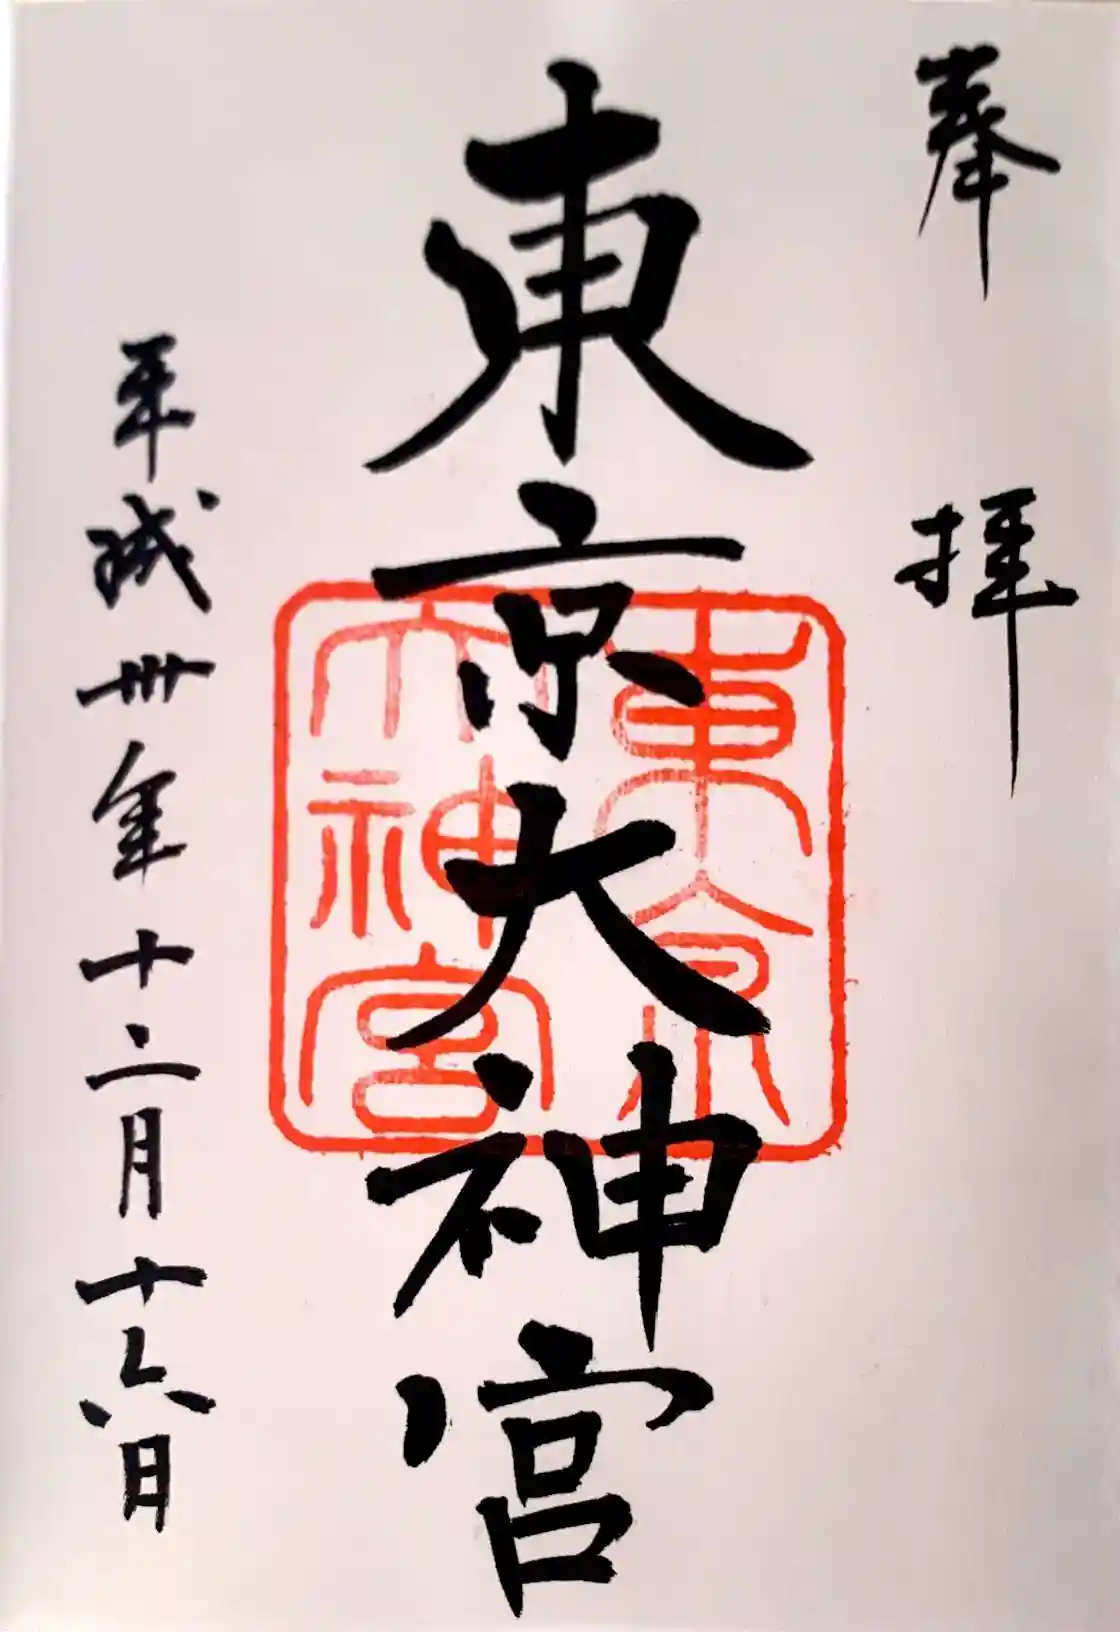 奉拝
東京大神宮
東京
大神宮
平成卅年十二月十六日